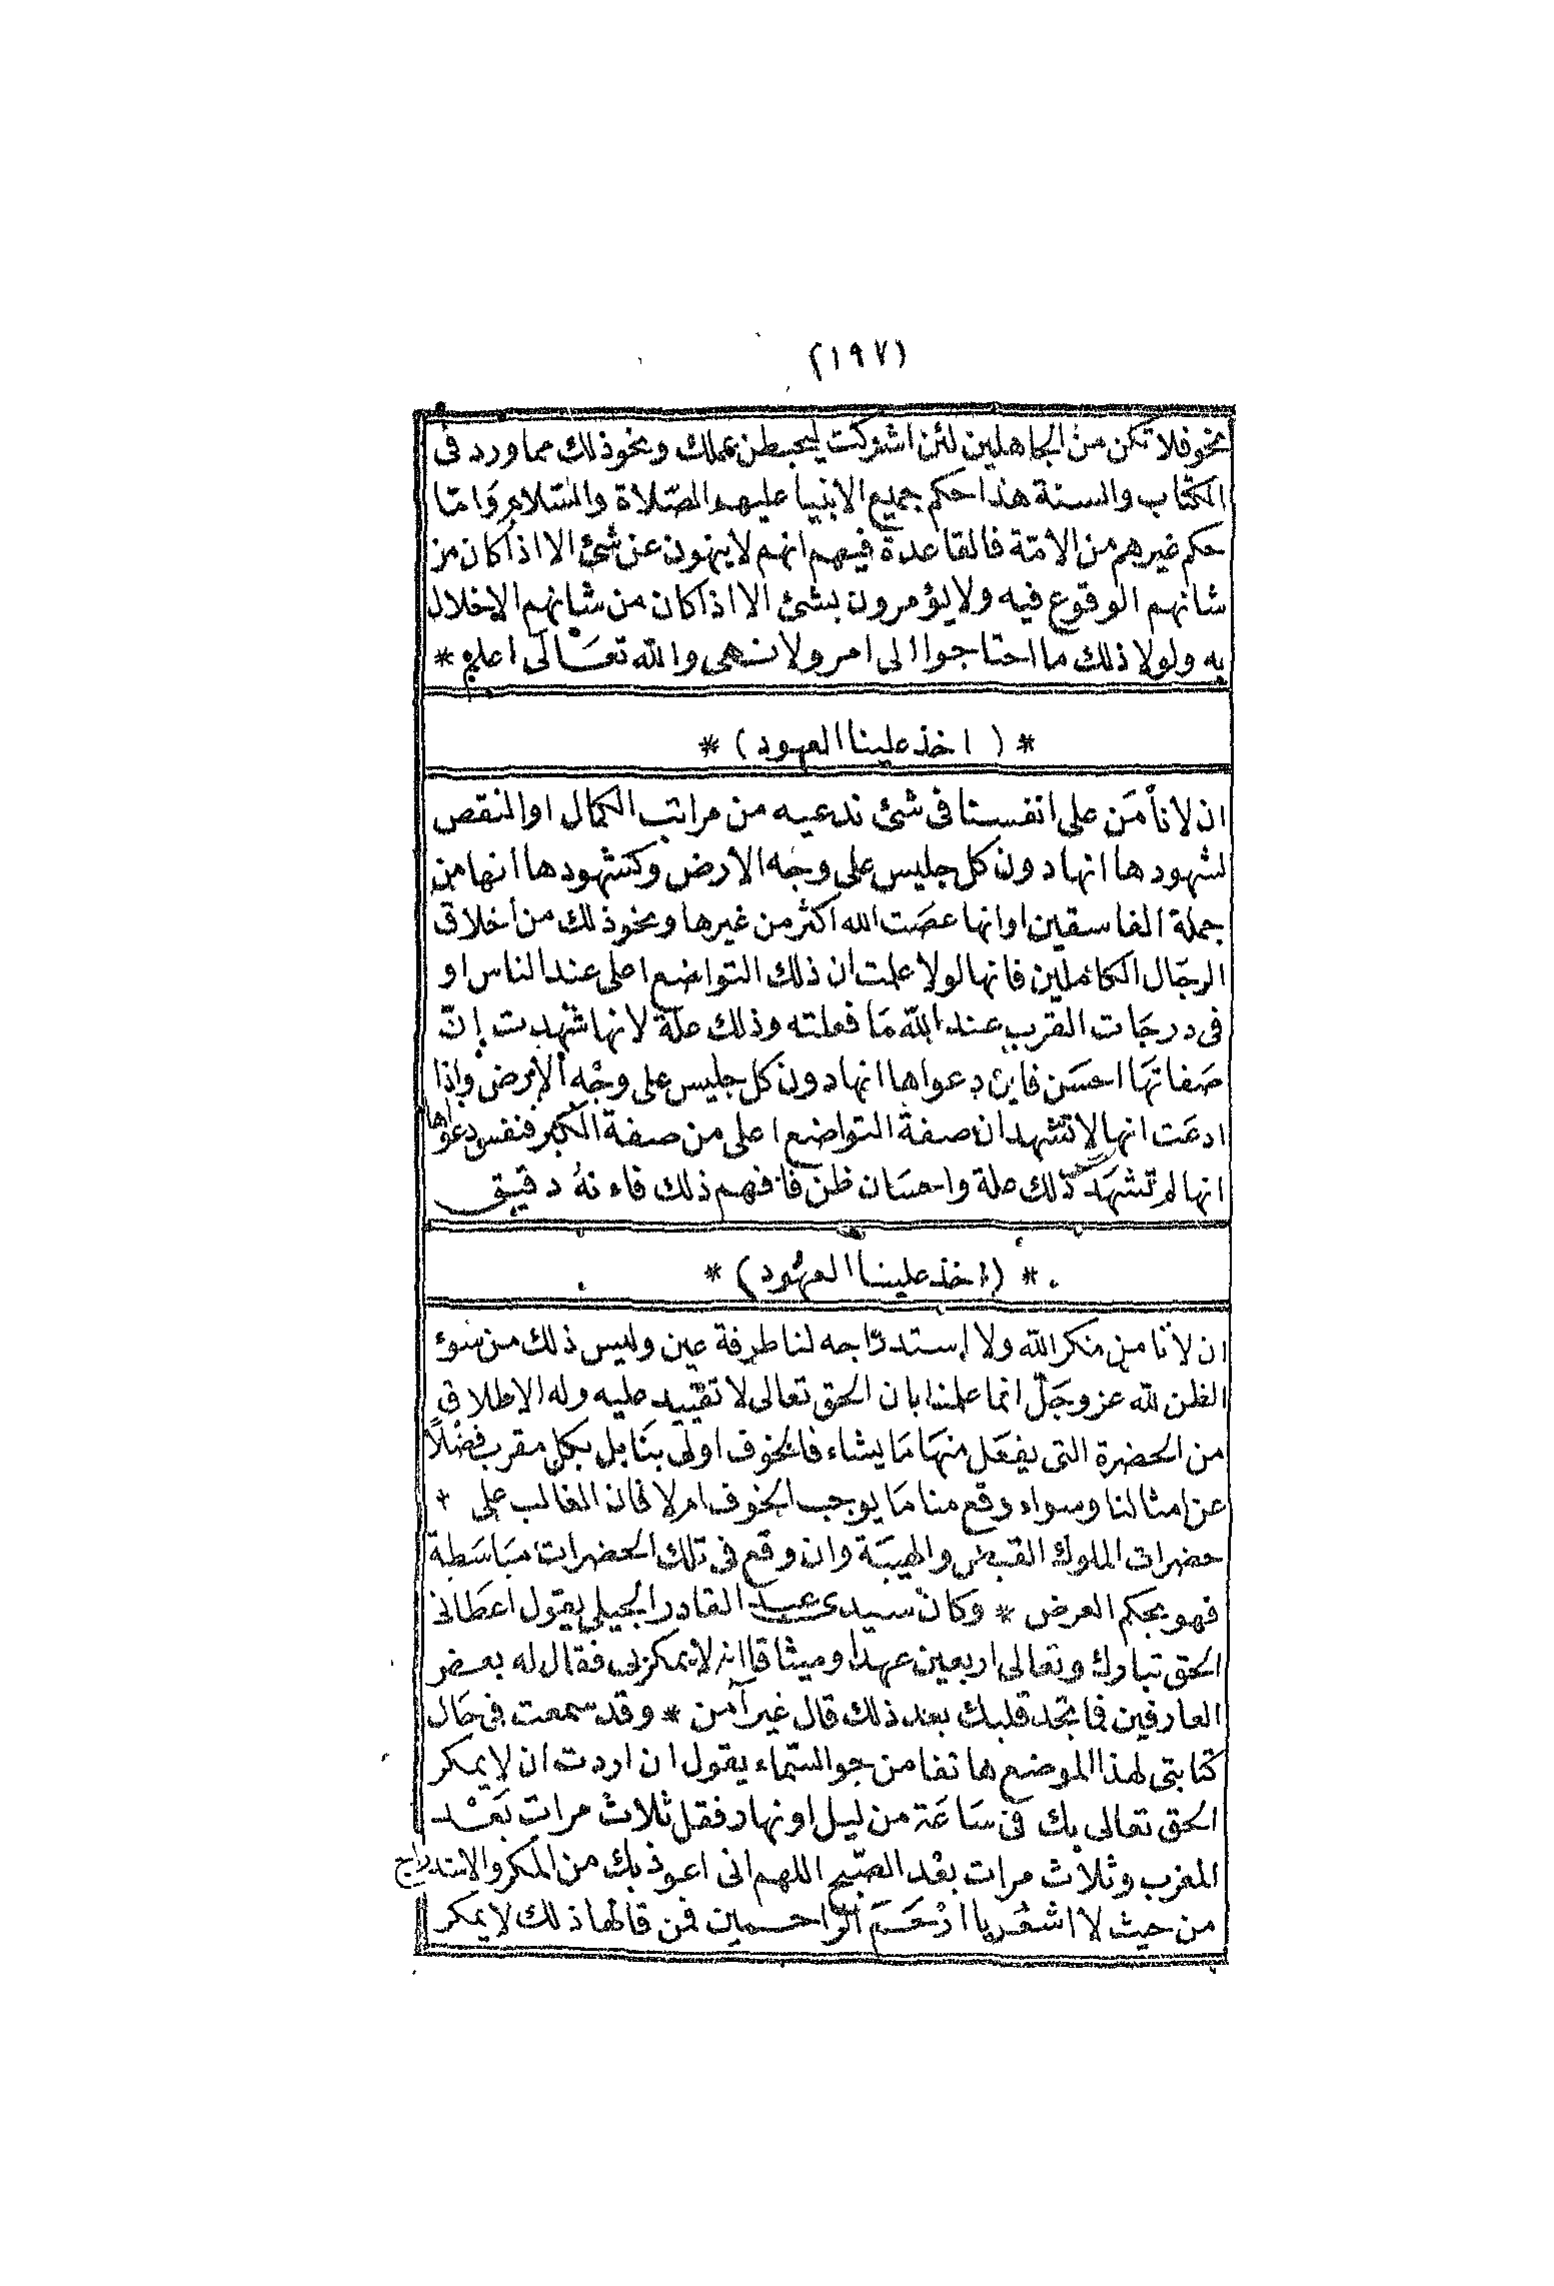 (١٩٧)
نحو فلا تكن من الجاهلين لئن اشركت ليحبطن عملك ونحو ذلك مما ورد فى
الكتاب والسنة هذا حكم جميع الانبيا عليهم الصّلاة والسّلام وَامّا
حكم غيرهم من الامّة فالقاعدة فيهم انهم لا ينهون عن شئ الا اذا كان من
شانهم الوقوع فيه ولا يؤمرون بشئ الا اذا كان من شانهم الاخلال
به ولولا ذلك ما احتاجوا الى امر ولا نهى والله تعَالى اعلم *
* ( اخذ علينا العهود ) *
ان لا نأمَن على انفسنا فى شئ ندعيه من مراتب الكمال او النقص
لشهودها انها دون كل جليس على وجْه الارض وكشهودها انها من
جملة الفاسقين او انها عصَت الله اكثر من غيرها ونحو ذلك من أخلاق
الرجَال الكاملين فانها لولا علمت ان ذلك التواضع اعلى عند الناس او
فى درجَات القرب عند الله مَا فعلته وذلك علة لانها شهدت إنّ
صَفاتهَا احسَن فاين دعواها انها دون كل جليس على وجْه الأرض وإذا
ادعَت انها لا تشهد ان صفة التواضع اعلى من صفة الكبر فنفس دعواها
انها لم تشهَد ذلك علة واحسَان ظن فافهم ذلك فاءنهُ دقيق
* (اخذ علينا العهُود) *
ان لا نامن مكر الله ولا استدرَاجه لنا طرفة عين وليس ذلك من سُوء
الظن لله عز وجَلّ انما علمنا بان الحق تعالى لا تقييد عليه وله الاطلاق
من الحضرة التى يفعَل منهَا مَا يشاء فالخوف اولى بنَا بل بكل مقرب فضْلاً
عن امثالنا وسواء وقع منا مَا يوجب الخوف ام لا فان الغالب على *
حضرات الملوك القبض والهيبَة وان وقع فى تلك الحضرات مبَاسَطة
فهو بحكم العرض * وكان سيدى عبد القادر الجيلى يقول اعطَانى
الحق تبارك وتعالى اربعين عهدا وميثاقا انه لا يمكر بى فقال له بعض
العارفين فما تجد قلبك بعد ذلك قال غير آمن * وقد سمعت فى حَال
كتابتى لهذا الموضع هاتفا من جو السّماء يقول ان اردت ان لا يمكر
الحق تعالى بك فى سَاعَة من ليل او نهار فقل ثلاث مرات بَعْد
المغرب وثلاث مرات بعْد الصّبح اللهم انى اعوذ بك من المكر والاستدراج
من حيث لا اشعُر يا ارْحَمَ الرّاحمين فمن قالها ذلك لا يمكر